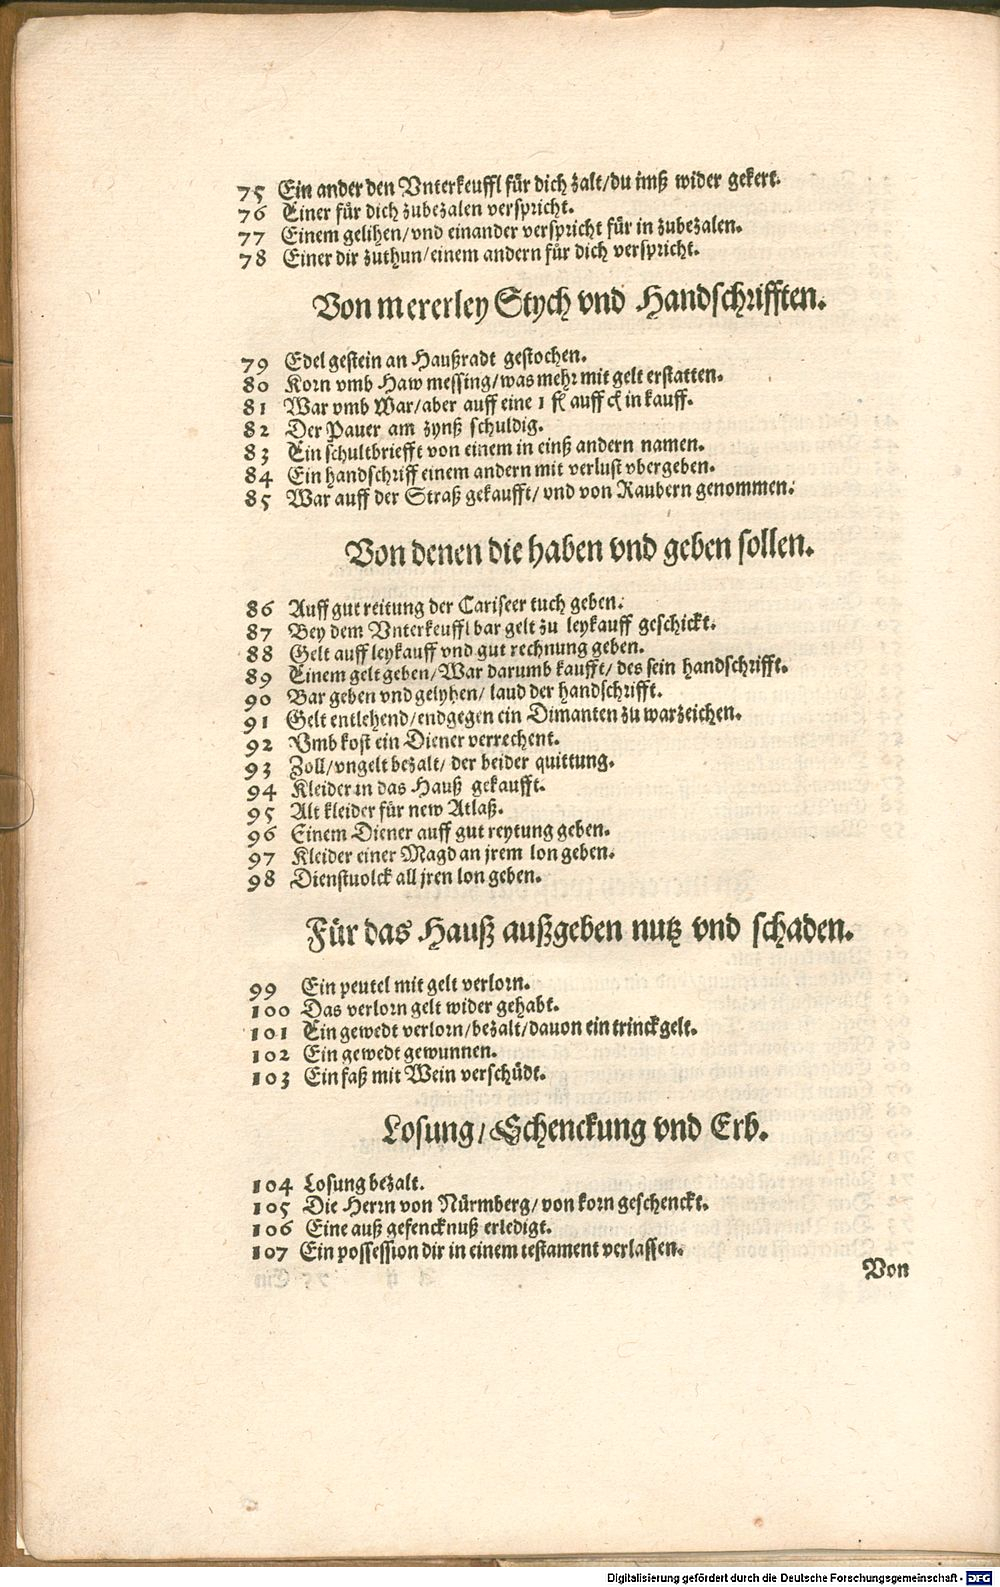 75 Ein ander den Vnterkeuffl für dich zalt/du imß wider gekert.
76 Einer für dich zubezalen verspricht.
77 Einem gelihen/vnd einander verspricht für in zubezalen.
78 Einer dir zuthun/einem andern für dich verspricht.
Von mererley Stych vnd Handschrifften.
79 Edel gestein an Haußradt gestochen.
80 Korn vmb Haw messing/was mehr mit gelt erstatten.
81 War vmb War/aber auff eine 1 fl auff in kauff.
82 Der Pauer am zynß schuldig.
83 Ein schultbriefft von einem in einß andern namen.
84 Ein handschriff einem andern mit verlust vbergeben.
85 War auff der Straß gekaufft/vnd von Raubern genommen.
Von denen die haben vnd geben sollen.
86 Auff gut reitung der Cariseer tuch geben.
87 Bey dem Vnterkeuffl bar gelt zu leykauff geschickt.
88 Gelt auff leykauff vnd gut rechnung geben.
89 Einem gelt geben/War darumb kaufft/des sein handschrifft.
90 Bar geben vnd gelyhen/laud der handschrifft.
91 Gelt entlehend/endgegen ein Dimanten zu warzeichen.
92 Vmb kost ein Diener verrechent.
93 Zoll/vngelt bezalt/der beider quittung.
94 Kleider in das Hauß gekaufft.
95 Alt kleider für new Atlaß.
96 Einem Diener auff gut reytung geben.
97 Kleider einer Magd an jrem lon geben.
98 Dienstuolck all jren lon geben.
Für das Hauß außgeben nutz vnd schaden.
99 Ein peutel mit gelt verlorn.
100 Das verlorn gelt wider gehabt.
101 Ein gewedt verlorn/bezalt/dauon ein trinckgelt.
102 Ein gewedt gewunnen.
103 Ein faß mit Wein verschüdt.
Losung/Schenckung vnd Erb.
104 Losung bezalt.
105 Die Herrn von Nürmberg/von korn geschenckt.
106 Eine auß gefencknuß erledigt.
107 Ein possession dir in einem testament verlassen.
Von
Digitalisierung gefördert durch die Deutsche Forschungsgemeinschaft - DFG